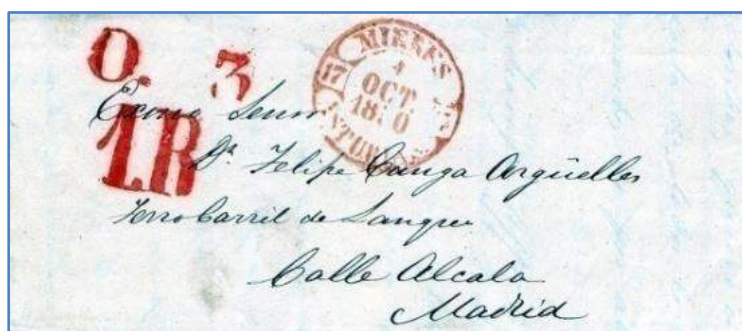 O. 3
1R
MIERES
17
4
OCT
1850
ASTURIAS
Exmo Senor
Dn. Felipe Canga Argüelles
Ferro Carril de Langreo
Calle Alcala
Madrid